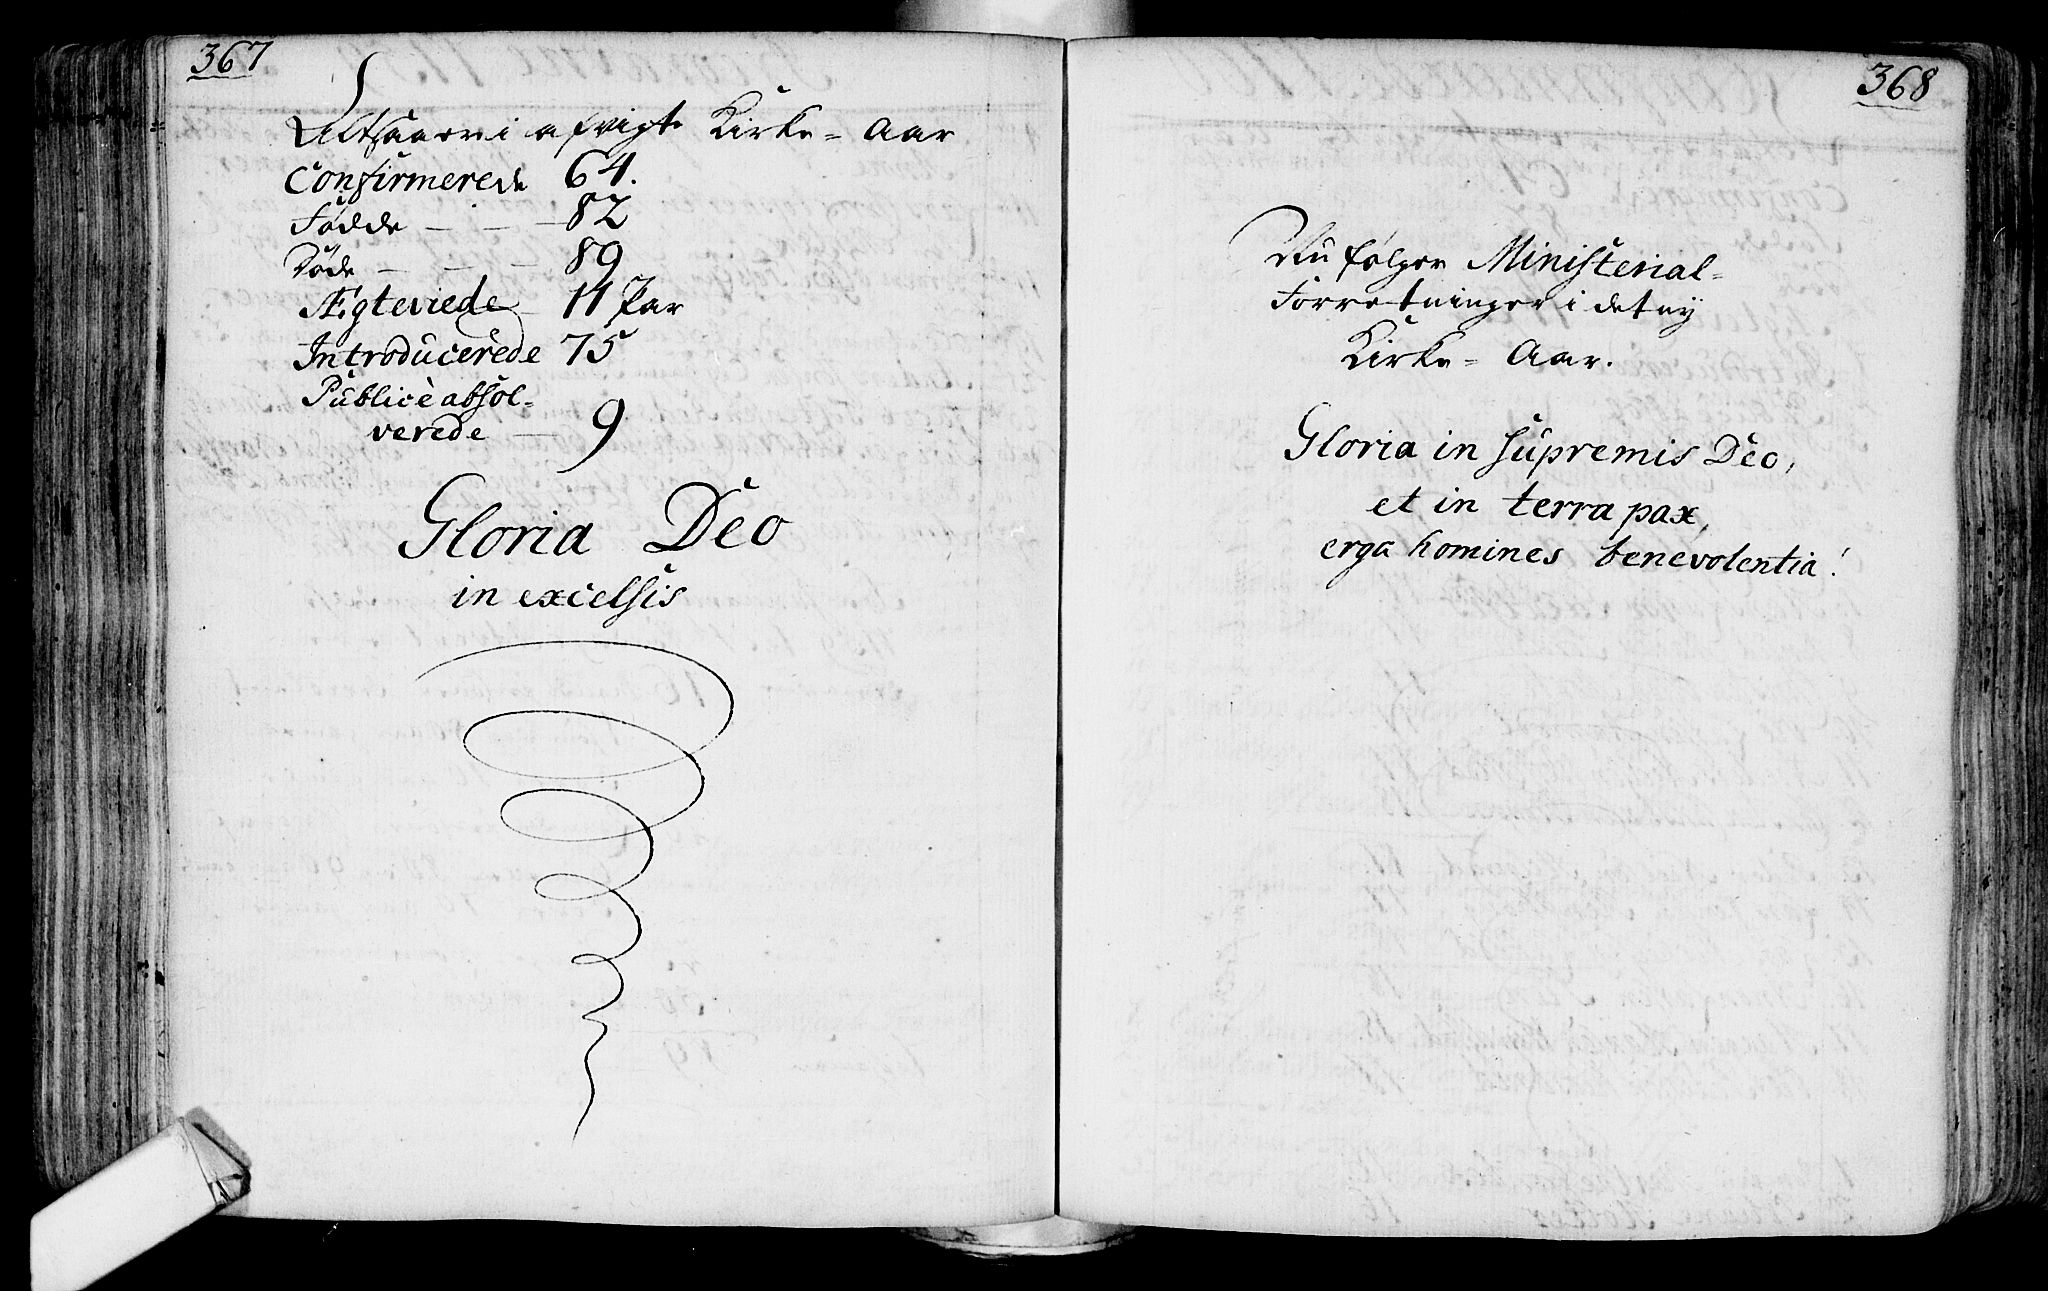 367
Altsaa er i afvigte Kirke= Aar
Confirmerede 64.
Födde - - - 82
Döde - - - 89
Ægteviede - 11 Par
Introducerede 75
Publicè absol=
verede - 9
Gloria Deo
in excelsis
368
Nu følger Ministerial=
Forretninger i det ny
Kirke= Aar.
Gloria in supremis Deo,
et in terra pax,
erga homines benevolentia!